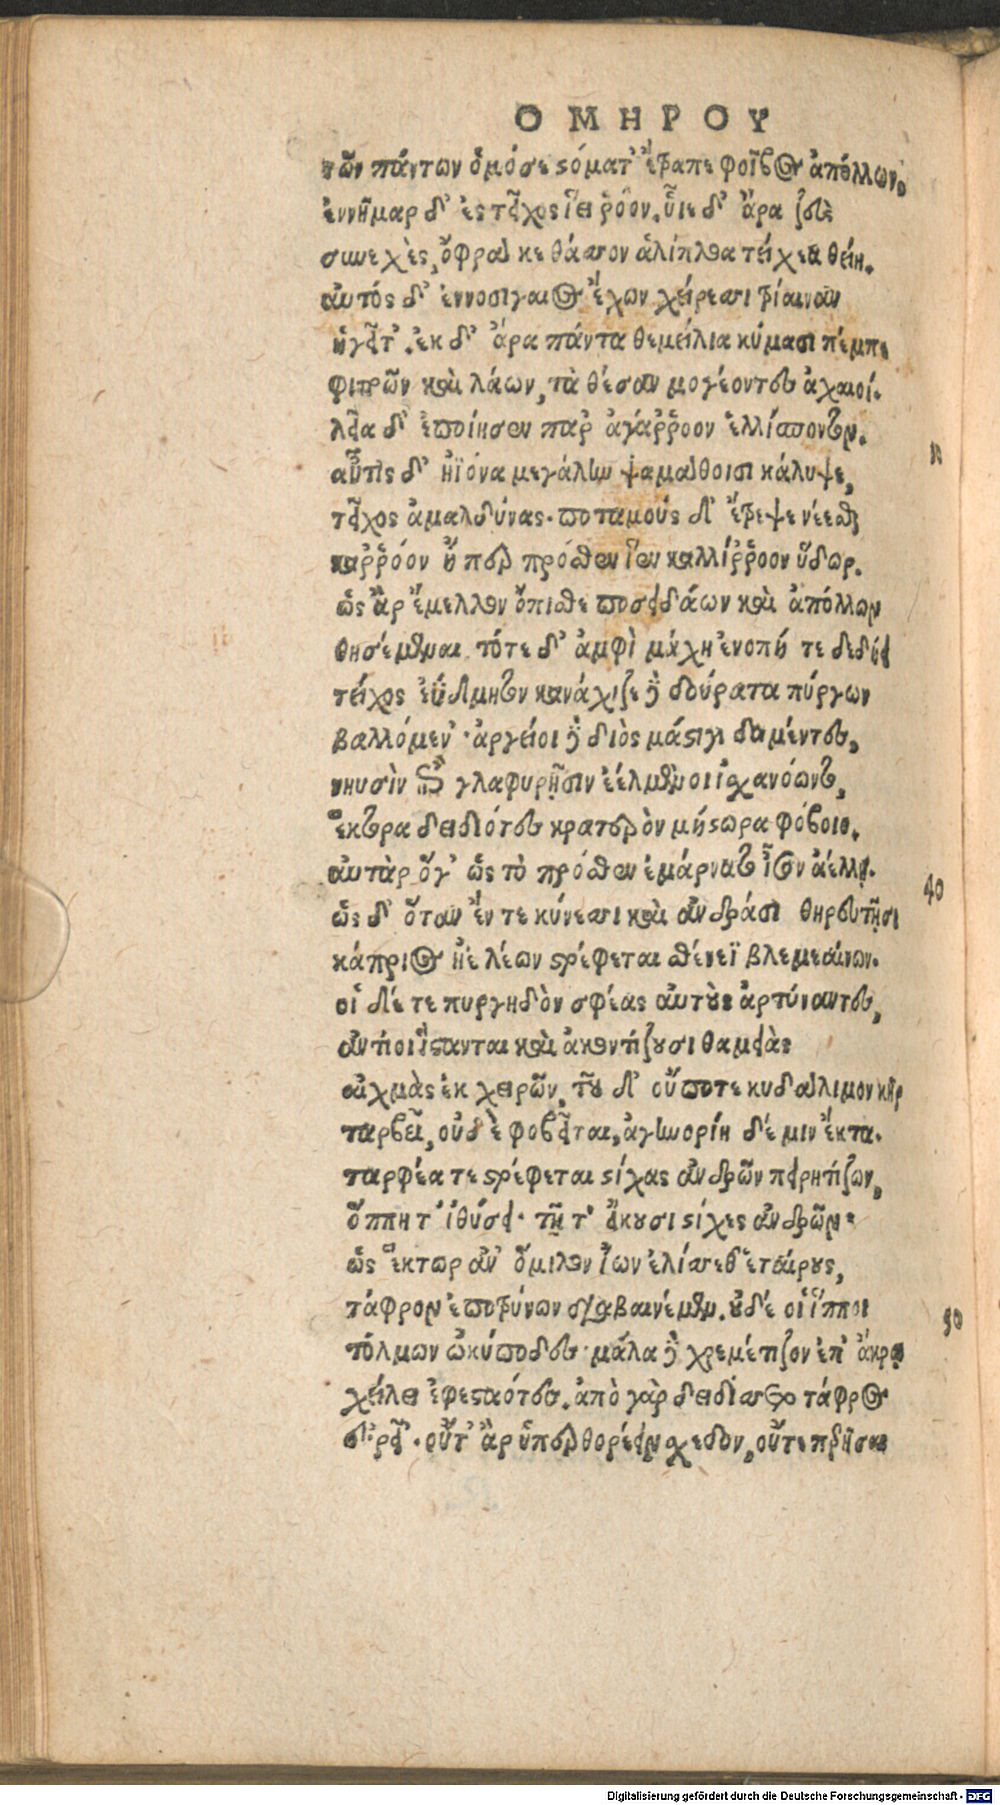 ΟΜΗΡΟΥ
τῶν πάντων ὁμόσε στόματ' ἔτραπε φοῖβος ἀπόλλων,
ἐννῆμαρ δ' ἐς τεῖχος ἵει ῥόον. ὗε δ' ἄρα ζεὺς
συνεχὲς, ὄφρα κε θᾶσσον ἁλίπλοα τείχεα θείη.
αὐτός δ' ἐννοσίγαιος ἔχων χείρεσσι τρίαιναν
ἡγεῖτ'. ἐκ δ' ἄρα πάντα θεμείλια κύμασι πέμπε
φιτρῶν καὶ λάων, τὰ θέσαν μογέοντες ἀχαιοί.
λεῖα δ' ἐποίησεν παρ ἀγάῤῥοον ἑλλήσποντον.
αὖτις δ' ἠϊόνα μεγάλην ψαμάθοισι κάλυψε,
τεῖχος ἀμαλδύνας. ποταμοὺς δ' ἔτρεψε νέεσθαι
καῤῥόον ᾗ περ πρόσθεν ἵεν καλλίῤῥοον ὕδωρ.
ὣς ἂρ ἔμελλον ὄπισθε ποσειδάων καὶ ἀπόλλων
θησέμεναι. τότε δ' ἀμφὶ μάχη ἐνοπή τε δεδήει
τεῖχος ἐΰδμητον κανάχιζε δὲ δούρατα πύργων
βαλλόμεν'. ἀργεῖοι δὲ διὸς μάστιγι δαμέντες,
νηυσὶν ἔπι γλαφυρῇσιν ἐελμένοι ἰσχανόωντο,
ἕκτορα δειδιότες κρατερὸν μήστωρα φόβοιο.
αὐτὰρ ὅγ' ὡς τὸ πρόσθεν ἐμάρνατο ἶσον ἀέλλῃ.
ὡς δ' ὅταν ἔν τε κύνεσσι καὶ ἀνδράσι θηρευτῇσι
κάπριος ἠὲ λέων στρέφεται σθένεϊ βλεμεαίνων.
οἱ δέ τε πυργηδὸν σφέας αὐτοὺς ἀρτύναντες,
ἀντίοι ἵστανται καὶ ἀκοντίζουσι θαμειὰς
αἰχμὰς ἐκ χειρῶν, τοῦ δ' οὔποτε κυδάλιμον κῆρ
ταρβεῖ, οὐδὲ φοβεῖται, ἀγηνορίη δέ μιν ἔκτα.
ταρφέα τε στρέφεται στίχας ἀνδρῶν πειρητίζων,
ὅππη τ' ἰθύσει. τῇ τ' εἴκουσι στίχες ἀνδρῶν.
ὡς ἕκτωρ ἀν' ὅμιλον ἰὼν ἐλίσσεθ' ἑταίρους,
τάφρον ἐποτρύνων διαβαινέμεν. οὐδέ οἱ ἵπποι
τόλμων ὠκύποδες. μάλα δὲ χρεμέτιζον ἐπ' ἄκρῳ
χείλει ἐφεσταότες. ἀπὸ γὰρ δειδίσσετο τάφρος
εὐρεῖ'. οὔτ' ἂρ ὑπερθορέειν σχεδον, οὔτε περῆσαι
40
50